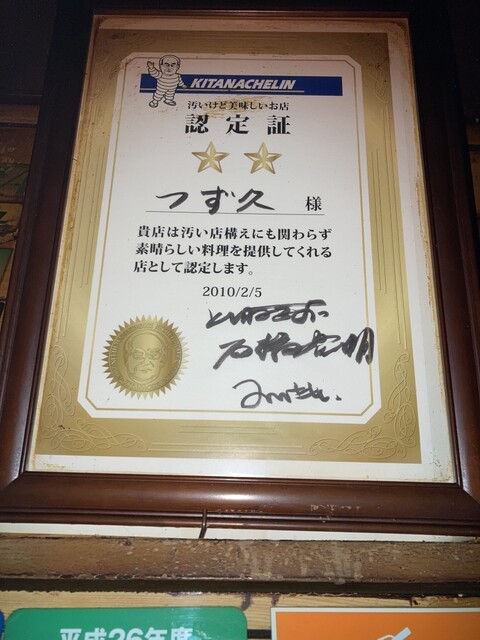 KITANACHELIN
汚いけど美味しいお店
認定証
つず久 様
貴店は汚い店構えにも関わらず
素晴らしい料理を提供してくれる
店として認定します。
2010/2/5
石橋貴明
平成26年度